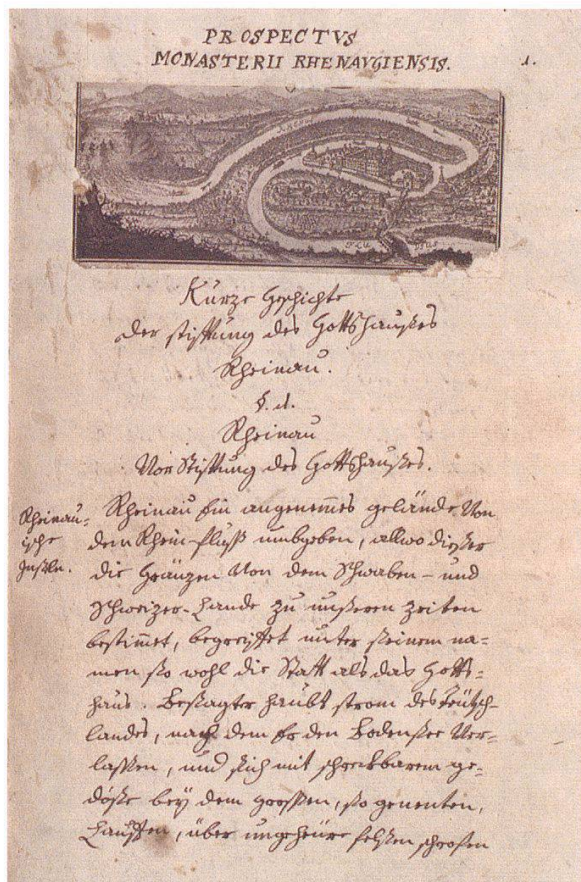 PROSPECTVS
MONASTERII RHENAVGIENSIS.
1.
Kurze Geschichte
der stifftung des Gottshaußes
Rheinau.
§. 1.
Rheinau
Vor Stifftung des Gottshaußes.
Rheinau-
ische
Inßlen.
Rheinau Ein angenemmes gelände Von
dem Rhein-fluß umbgeben, allwo dießer
die Gränzen Von dem Schwaben- und
Schweizer-Lande zu unßeren zeiten
bestimmet, begreiffet unter ßeinem na-
men ßo wohl die Statt als das Gotts-
haus. Beßagter Haubt strom des Teütsch-
landes, nach dem Er den Bodenßee Ver-
laßßen, und ßich mit schreckbarem ge-
döße bey dem großßen, ßo genenten,
Lauffen, über ungeheüre felßen schrofen